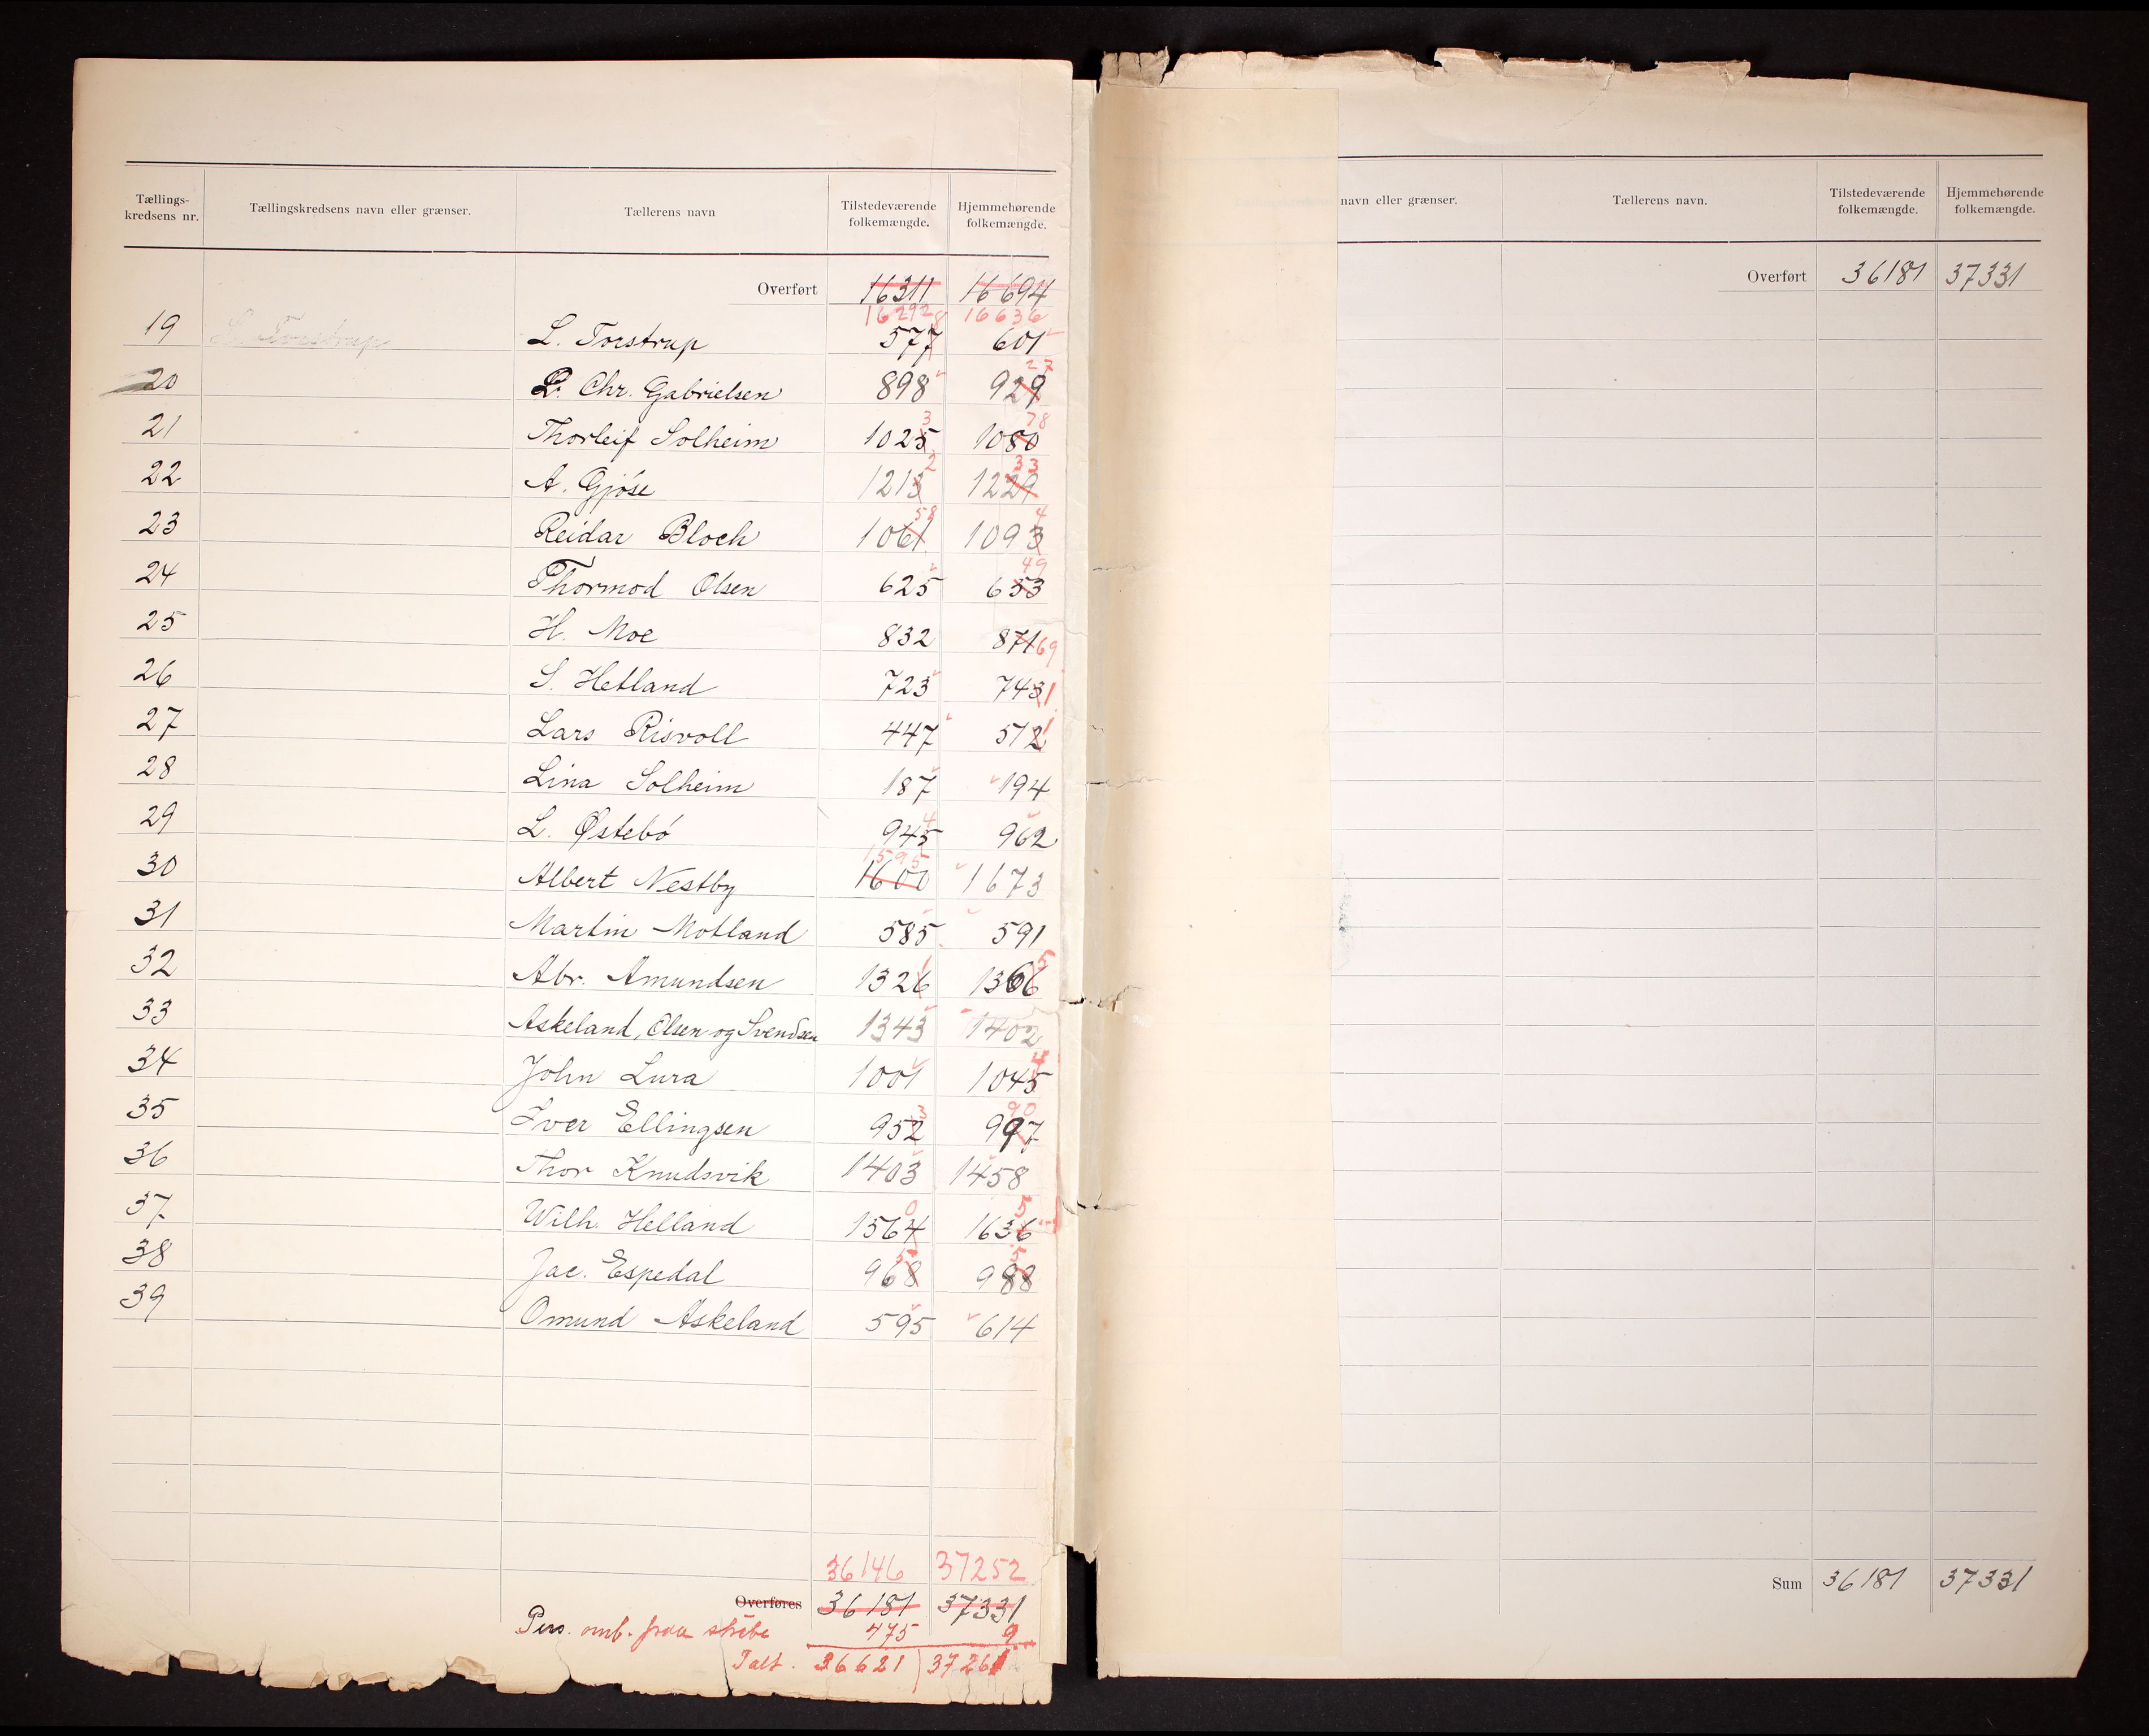 Tællings-kredsens nr. Tællingskredsens navn eller grænser. Tællerens navn Tilstedeværende folkemængde. Hjemmehørende folkemængde.
Overført 16311 16694
16292 16636
19 L. Torstrup L. Torstrup 577 8 601
20 P. Chr. Gabrielsen 898 929 27
21 Thorleif Solheim 1025 3 1080 78
22 A. Gjöse 1215 2 1229 33
23 Reidar Bloch 1061 58 1093 4
24 Thormod Olsen 625 653 49
25 H. Moe 832 871 69
26 S. Hetland 723 743 1
27 Lars Risvoll 447 512 1
28 Lina Solheim 187 194
29 L. Østebó 945 4 962
30 Albert Nestby 1600 1595 1673
31 Martin Motland 585 591
32 Abr. Amundsen 1326 1 1366 5
33 Askeland, Olsen og Svendsen 1343 1402
34 John Lura 1001 1045 4
35 Iver Ellingsen 952 3 997 90
36 Thor Knudsvik 1403 1458
37 Wilh. Helland 1564 0 1636 5
38 Jac. Espedal 968 988 5
39 Omund Askeland 595 614
36146 37252
Overføres 36181 37331
Pers. omb. fraa skibe 475 9
Ialt. 36621 37261
navn eller grænser. Tællerens navn. Tilstedeværende folkemængde. Hjemmehørende folkemængde.
Overført 36181 37331
Sum 36181 37331